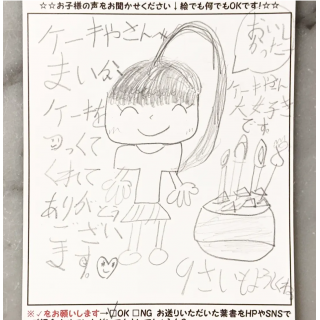 ☆☆お子様の声をお聞かせください↓絵でも何でもOKです!☆☆
ケーキやさん
まい分
ケーキを
つくて
くれて
ありがとう
ござい
ます。
おいし
かった
ケーキさん
大好き
です。
9さいも
※✓をお願いします→□OK □NG お送りいただいた葉書をHPやSNSで